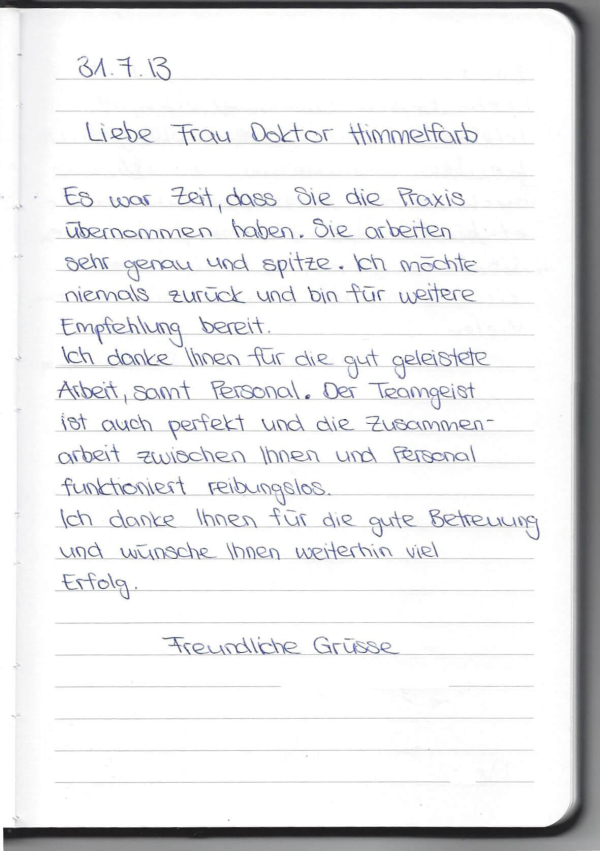 31.7.13
Liebe Frau Doktor Himmelfarb
Es war Zeit, dass Sie die Praxis
übernommen haben. Sie arbeiten
sehr genau und spitze. Ich möchte
niemals zurück und bin für weitere
Empfehlung bereit.
Ich danke Ihnen für die gut geleistete
Arbeit, samt Personal. Der Teamgeist
ist auch perfekt und die Zusammen-
arbeit zwischen Ihnen und Personal
funktioniert reibungslos.
Ich danke Ihnen für die gute Betreuung
und wünsche Ihnen weiterhin viel
Erfolg.
Freundliche Grüsse